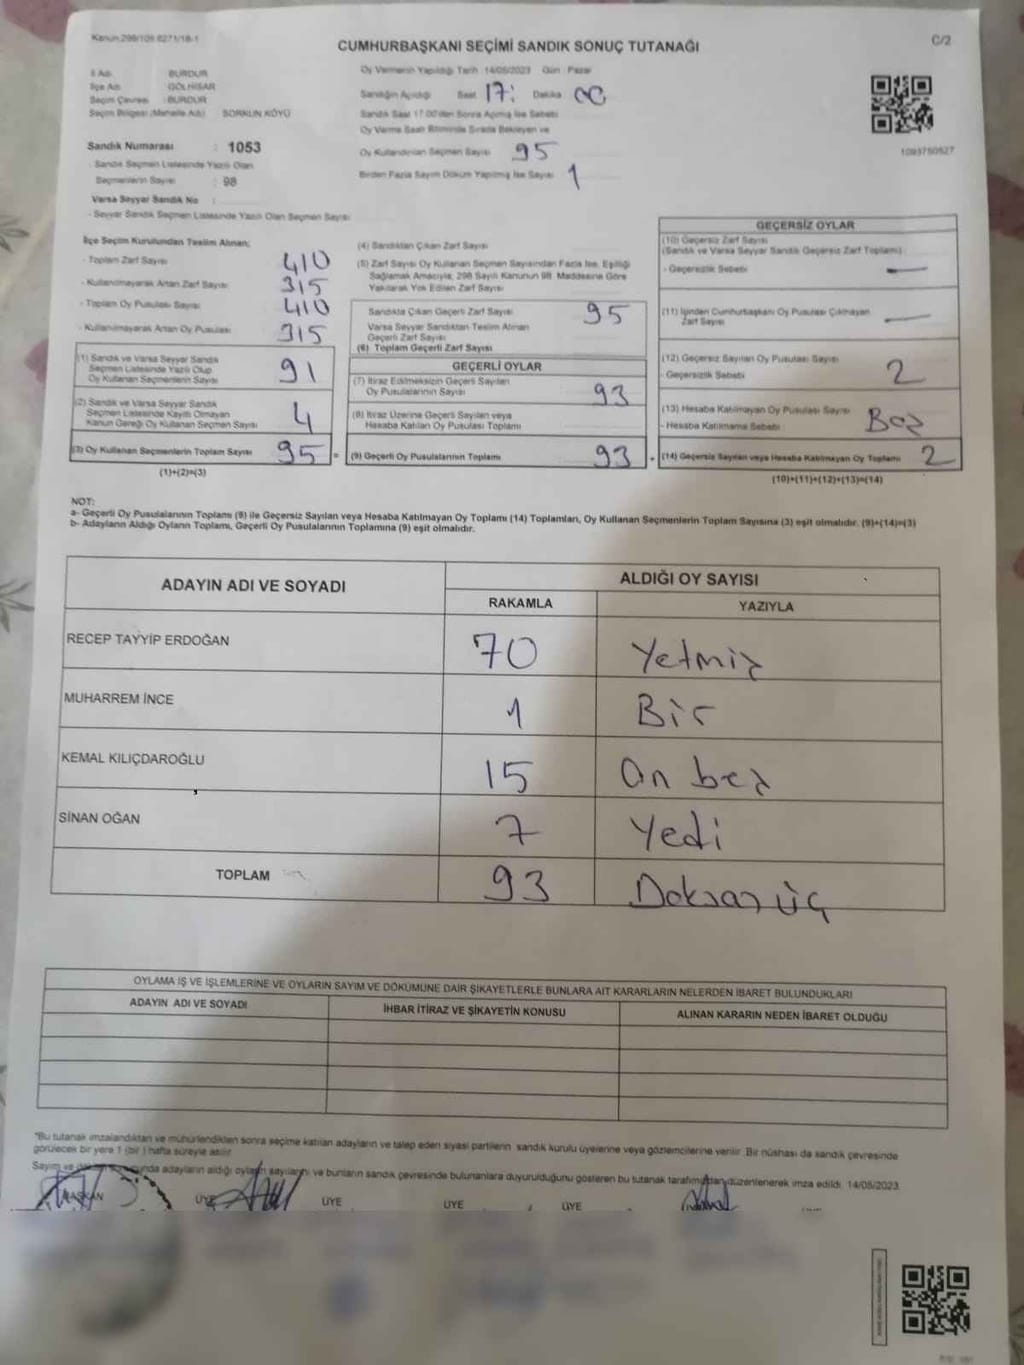 Kanun 298/105 6271/18-1
C/2
CUMHURBAŞKANI SEÇİMİ SANDIK SONUÇ TUTANAĞI
İl Adı : BURDUR
İlçe Adı : GÖLHİSAR
Seçim Çevresi : BURDUR
Seçim Bölgesi (Mahalle Adı) : SORKUN KÖYÜ
Sandık Numarası : 1053
- Sandık Seçmen Listesinde Yazılı Olan
Seçmenlerin Sayısı : 98
Varsa Seyyar Sandık No :
- Seyyar Sandık Seçmen Listesinde Yazılı Olan Seçmen Sayısı
Oy Vermenin Yapıldığı Tarih :14/05/2023 Gün : Pazar
Sandığın Açıldığı Saat 17: Dakika 00
Sandık Saat 17.00'den Sonra Açılmış İse Sebebi
Oy Verme Saati Bitiminde Sırada Bekleyen ve
Oy Kullandırılan Seçmen Sayısı 95
Birden Fazla Sayım Döküm Yapılmış İse Sayısı 1
1093760627
İlçe Seçim Kurulundan Teslim Alınan;
- Toplam Zarf Sayısı 410
- Kullanılmayarak Artan Zarf Sayısı 315
- Toplam Oy Pusulası Sayısı 410
- Kullanılmayarak Artan Oy Pusulası 315
(1) Sandık ve Varsa Seyyar Sandık
Seçmen Listesinde Yazılı Olup
Oy Kullanan Seçmenlerin Sayısı 91
(2) Sandık ve Varsa Seyyar Sandık
Seçmen Listesinde Kayıtlı Olmayan
Kanun Gereği Oy Kullanan Seçmen Sayısı 4
(3) Oy Kullanan Seçmenlerin Toplam Sayısı 95 =
(1)+(2)=(3)
(4) Sandıktan Çıkan Zarf Sayısı
(5) Zarf Sayısı Oy Kullanan Seçmen Sayısından Fazla İse, Eşitliği
Sağlamak Amacıyla, 298 Sayılı Kanunun 98. Maddesine Göre
Yakılarak Yok Edilen Zarf Sayısı
Sandıkta Çıkan Geçerli Zarf Sayısı 95
Varsa Seyyar Sandıktan Teslim Alınan
Geçerli Zarf Sayısı
(6) Toplam Geçerli Zarf Sayısı
GEÇERLİ OYLAR
(7) İtiraz Edilmeksizin Geçerli Sayılan
Oy Pusulalarının Sayısı 93
(8) İtiraz Üzerine Geçerli Sayılan veya
Hesaba Katılan Oy Pusulası Toplamı
(9) Geçerli Oy Pusulalarının Toplamı 93 +
GEÇERSİZ OYLAR
(10) Geçersiz Zarf Sayısı
(Sandık ve Varsa Seyyar Sandık Geçersiz Zarf Toplamı)
- Geçersizlik Sebebi —
(11) İçinden Cumhurbaşkanı Oy Pusulası Çıkmayan
Zarf Sayısı —
(12) Geçersiz Sayılan Oy Pusulası Sayısı
- Geçersizlik Sebebi 2
(13) Hesaba Katılmayan Oy Pusulası Sayısı
- Hesaba Katılmama Sebebi Boş
(14) Geçersiz Sayılan veya Hesaba Katılmayan Oy Toplamı 2
(10)+(11)+(12)+(13)=(14)
NOT:
a- Geçerli Oy Pusulalarının Toplamı (9) ile Geçersiz Sayılan veya Hesaba Katılmayan Oy Toplamı (14) Toplamları, Oy Kullanan Seçmenlerin Toplam Sayısına (3) eşit olmalıdır. (9)+(14)=(3)
b- Adayların Aldığı Oyların Toplamı, Geçerli Oy Pusulalarının Toplamına (9) eşit olmalıdır.
ADAYIN ADI VE SOYADI
ALDIĞI OY SAYISI
RAKAMLA YAZIYLA
RECEP TAYYİP ERDOĞAN 70 Yetmiş
MUHARREM İNCE 1 Bir
KEMAL KILIÇDAROĞLU 15 On beş
SİNAN OĞAN 7 Yedi
TOPLAM 93 Doksan üç
OYLAMA İŞ VE İŞLEMLERİNE VE OYLARIN SAYIM VE DÖKÜMÜNE DAİR ŞİKAYETLERLE BUNLARA AİT KARARLARIN NELERDEN İBARET BULUNDUKLARI
ADAYIN ADI VE SOYADI İHBAR İTİRAZ VE ŞİKAYETİN KONUSU ALINAN KARARIN NEDEN İBARET OLDUĞU
*Bu tutanak imzalandıktan ve mühürlendikten sonra seçime katılan adayların ve talep eden siyasi partilerin sandık kurulu üyelerine veya gözlemcilerine verilir. Bir nüshası da sandık çevresinde
görülecek bir yere 1 (bir) hafta süreyle asılır.
Sayım ve adayların aldığı oyların sayılarını ve bunların sandık çevresinde bulunanlara duyurulduğunu gösteren bu tutanak tarafımızdan düzenlenerek imza edildi. 14/05/2023
BAŞKAN ÜYE ÜYE ÜYE ÜYE